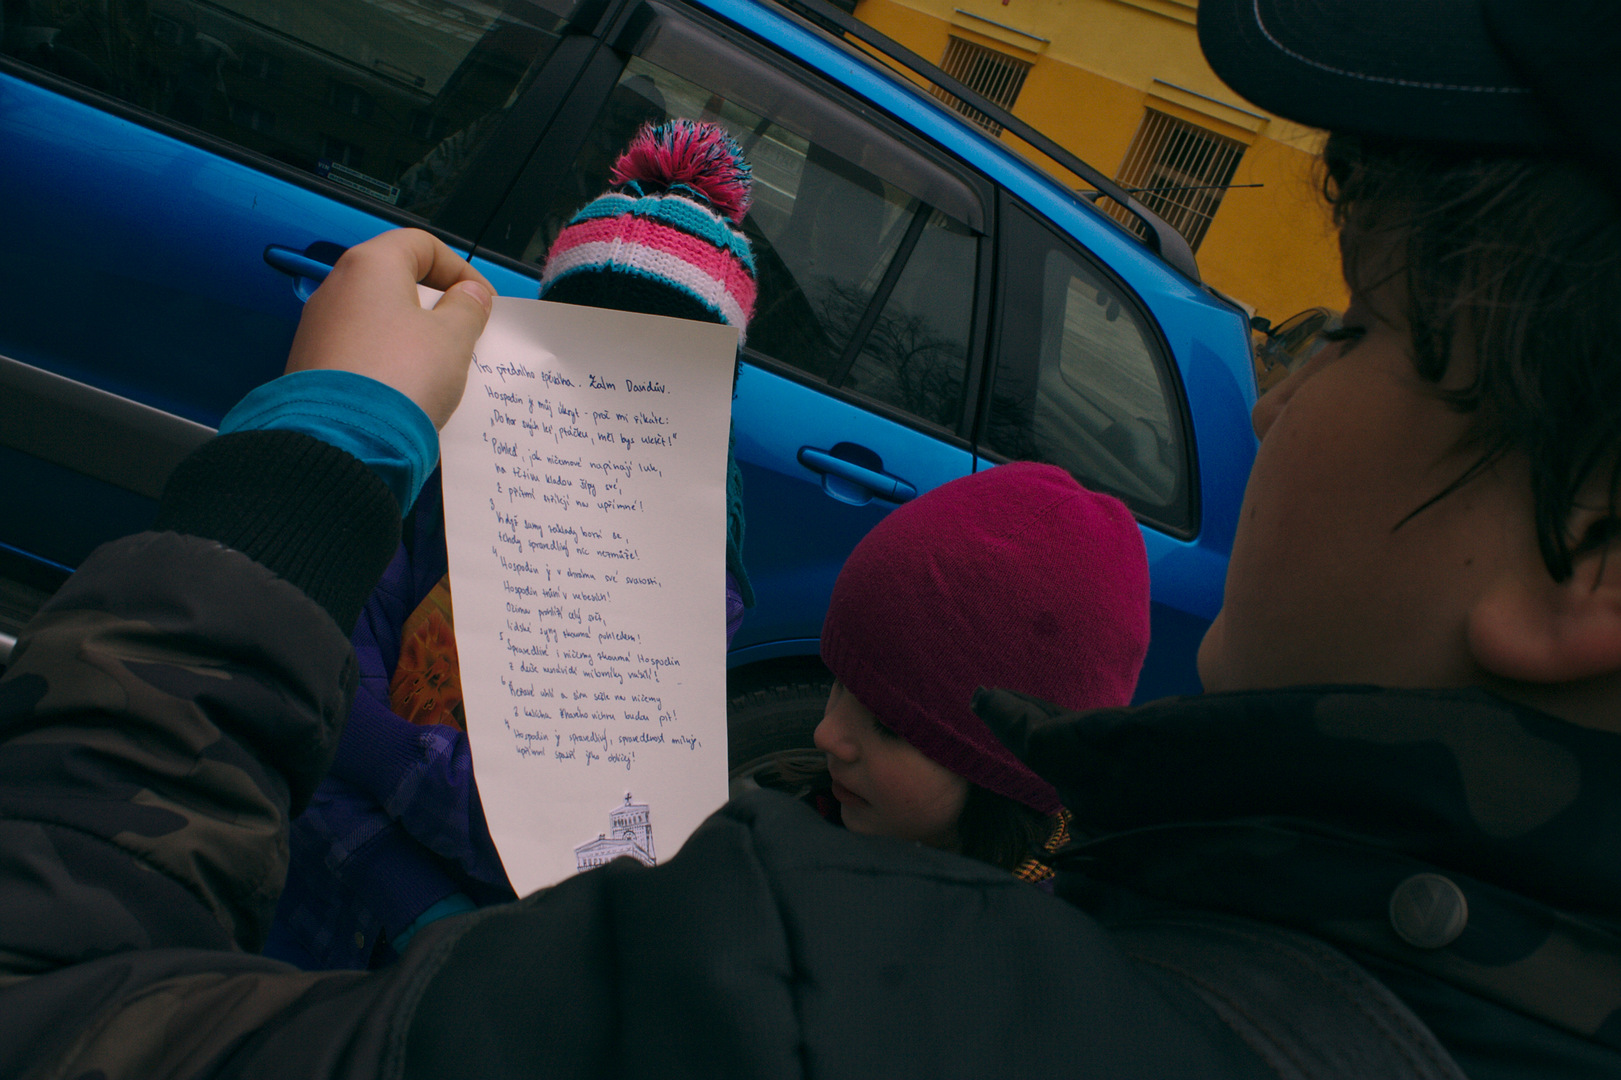 Pro předního zpěváka. Žalm Davidův.
Hospodin je můj úkryt - proč mi říkáte:
„Do hor svých leť, ptáčku, měl bys uletět!"
2 Pohleď, jak ničemové napínají luk,
na tětivu kladou šípy své,
z přítmí střílejí na upřímné!
3 Když samy základy boří se,
tehdy spravedlivý nic nezmůže!
4 Hospodin je v chrámu své svatosti,
Hospodin trůní v nebesích!
Očima prohlíží celý svět,
lidské syny zkoumá pohledem!
5 Spravedlivé i ničemy zkoumá Hospodin
z duše nenávidí milovníky násilí!
6 Řeřavé uhlí a síra sešle na ničemy
z kalicha žhavého vichru budou pít!
7 Hospodin je spravedlivý, spravedlnost miluje,
upřímní spatří jeho obličej!